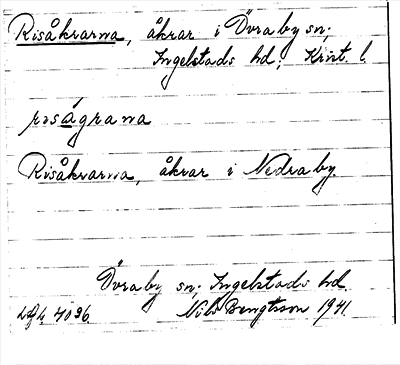 Risåkrarna, åkrar i Övraby sn;
Ingelstads hd; Krist. l.
riságrana
Risåkrarna, åkrar i Nedraby.
Övraby sn; Ingelstads hd.
4096. Nils Bengtsson 1941.